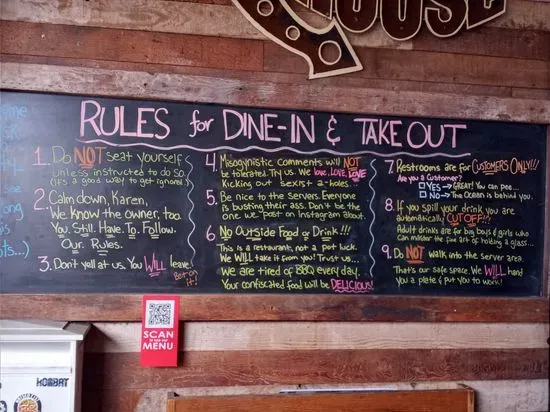 HOUSE
RULES for DINE-IN & TAKE OUT
1. Do NOT seat yourself
unless instructed to do so.
(It's a good way to get ignored)
2. Calm down, Karen,
We know the owner, too.
You. Still. Have. To. Follow.
Our. Rules.
3. Don't yell at us. You WILL leave.
Bet on it!
4. Misogynistic comments will NOT
be tolerated. Try us. We love, LOVE, LOVE
kicking out sexist a-holes.
5. Be nice to the servers. Everyone
is busting their ass. Don't be the
one we post on Instagram about.
6. No Outside Food or Drink!!!
This is a restaurant, not a pot luck.
We WILL take it from you! Trust us...
We are tired of BBQ every day.
Your confiscated food will be DELICIOUS!
7. Restrooms are for CUSTOMERS ONLY!!!
Are you a Customer?
YES → GREAT! You can pee...
NO → The OCEAN is behind you.
8. If you spill your drink you are
automatically CUT OFF!!!
Adult drinks are for big boys & girls who
can master the fine art of holding a glass...
9. Do NOT walk into the server area
That's our safe space. We WILL hand
you a plate & put you to work!
SCAN
MENU
KOMBAT